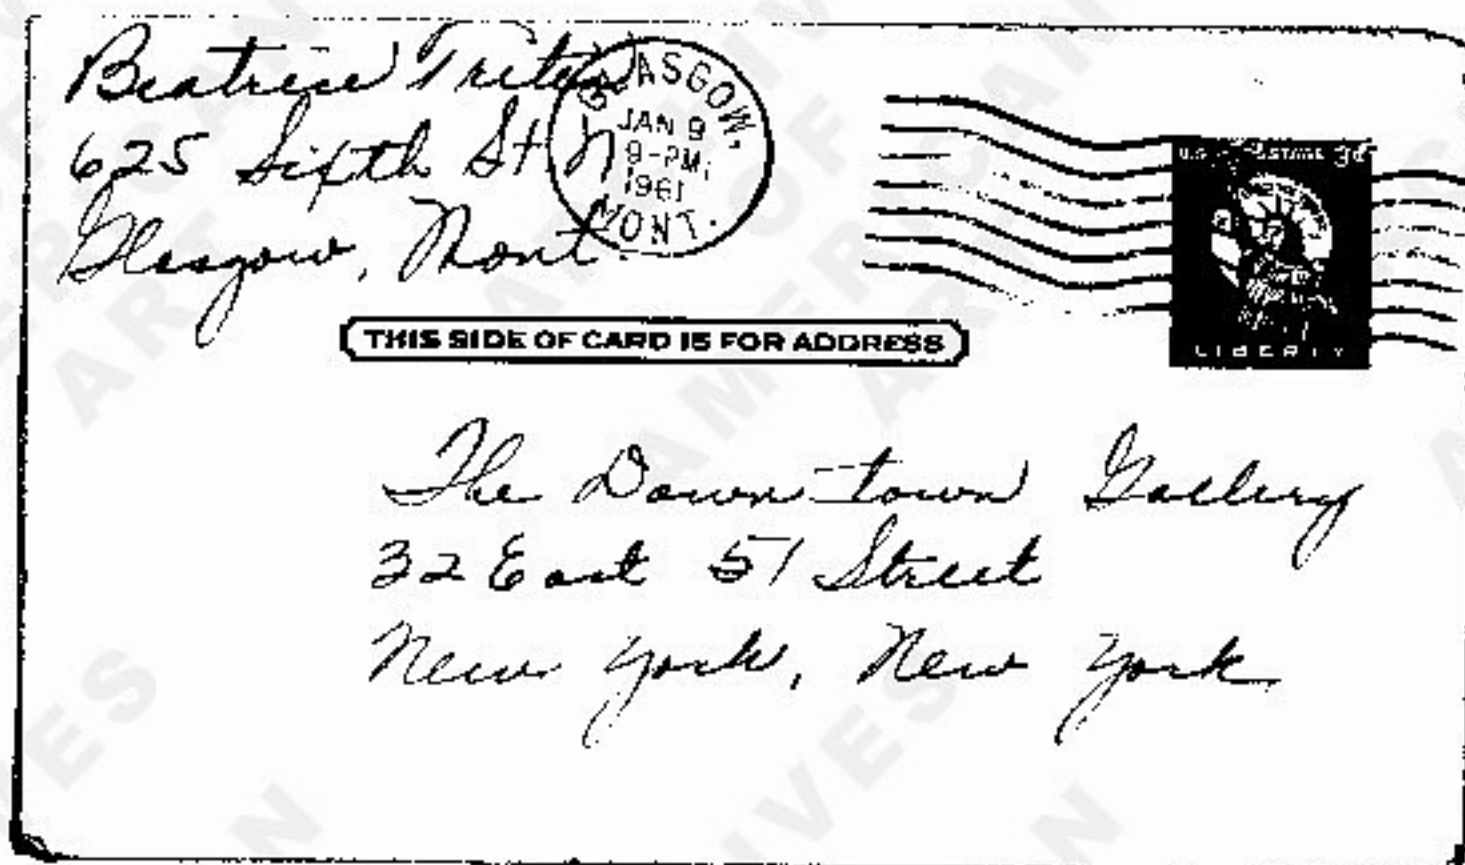 Beatrice
625 Sixth St N
Glasgow, Mont
GLASGOW,
JAN 9
9-PM
1961
MONT.
U.S. POSTAGE 3¢
LIBERTY
THIS SIDE OF CARD IS FOR ADDRESS
The Down-town Gallery
32 East 51 Street
New York, New York